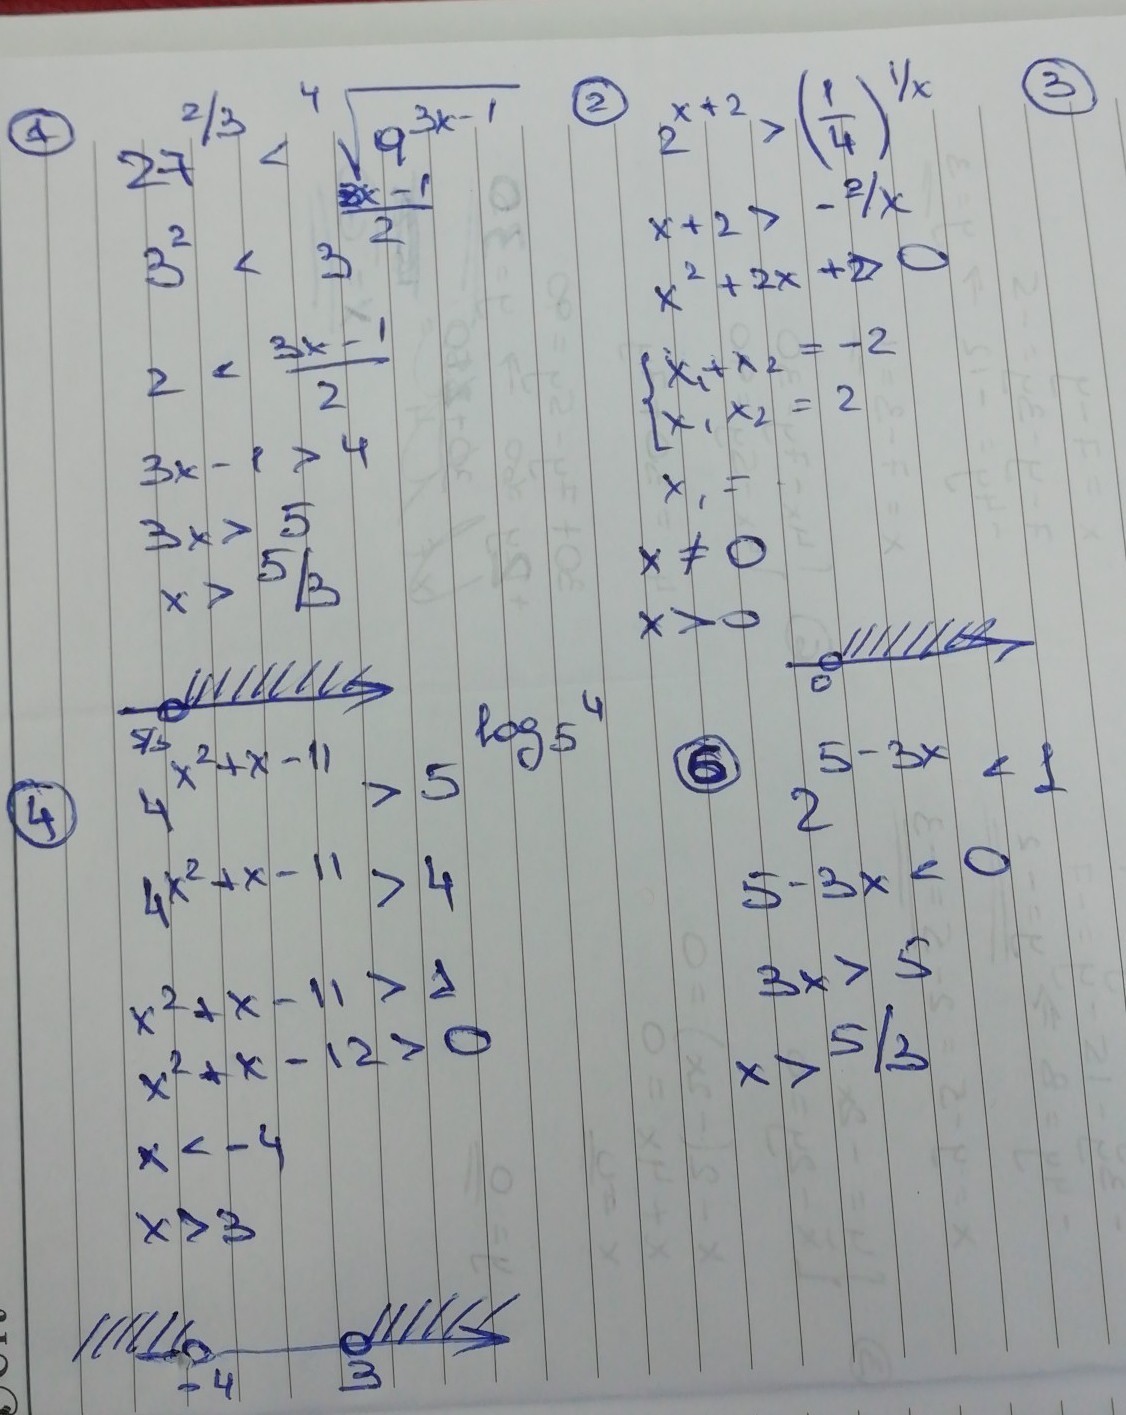 ①
27^{2/3} < \sqrt[4]{9^{3x-1}}
3^2 < 3^{\frac{3x-1}{2}}
2 < \frac{3x-1}{2}
3x - 1 > 4
3x > 5
x > 5/3
5/3
②
2^{x+2} > (\frac{1}{4})^{1/x}
x + 2 > -2/x
x^2 + 2x + 2 > 0
{ x_1 + x_2 = -2
x_1 x_2 = 2
x_1 =
x ≠ 0
x > 0
0
③
④
4^{x^2+x-11} > 5^{log_5 4}
4^{x^2+x-11} > 4
x^2 + x - 11 > 1
x^2 + x - 12 > 0
x < -4
x > 3
-4 3
⑥
2^{5-3x} < 1
5 - 3x < 0
3x > 5
x > 5/3